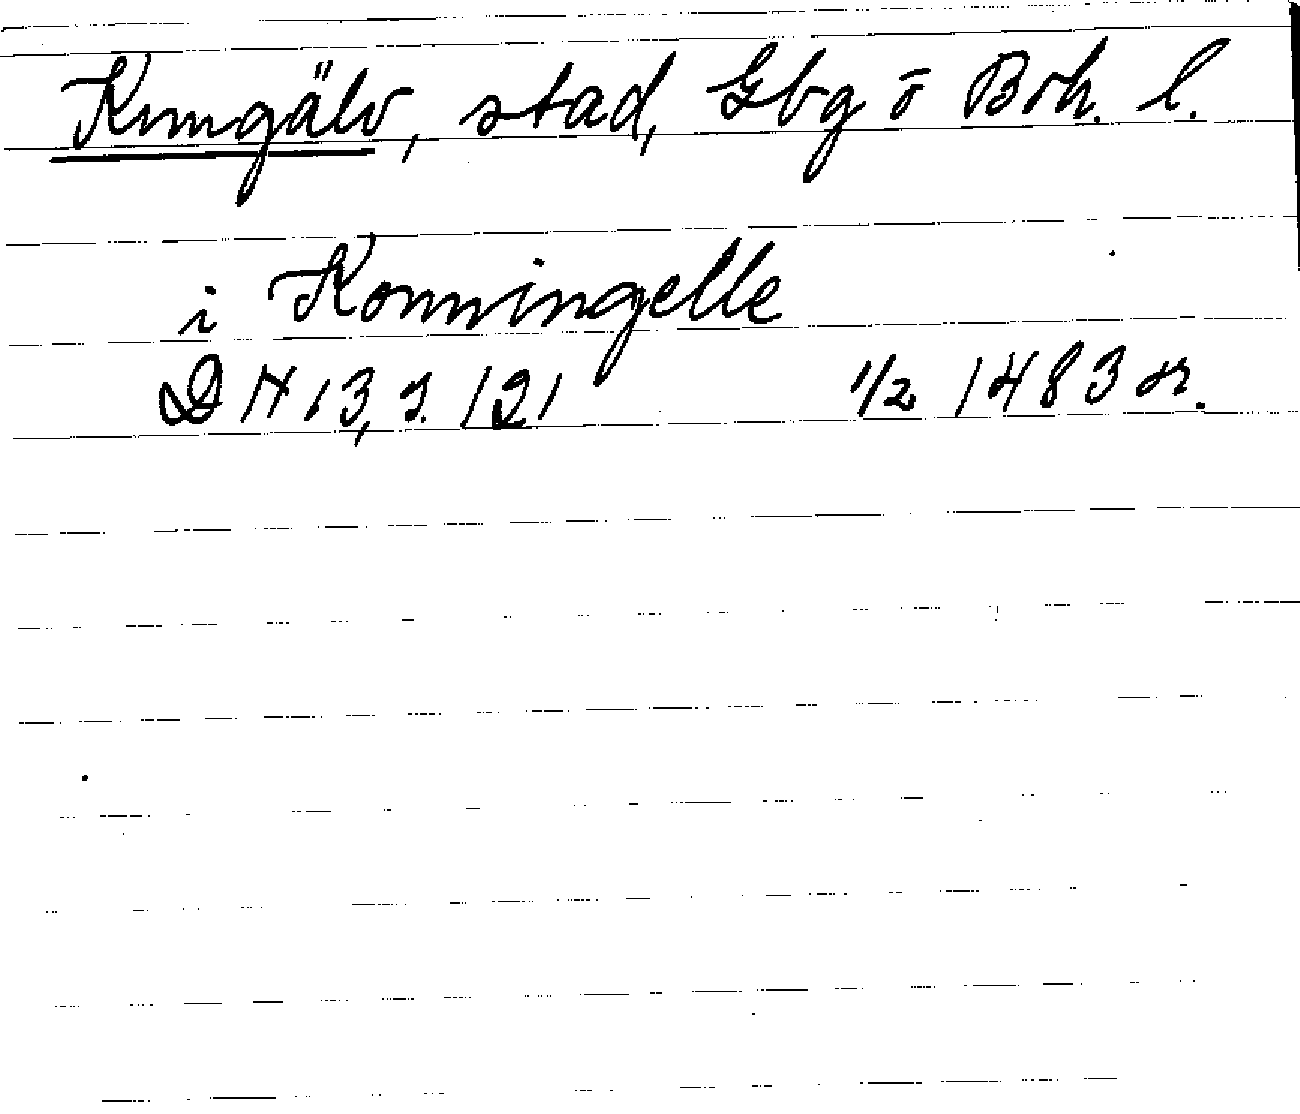 Kungälv, stad, Gbg o Boh. l.
i Konningelle
DN 13, s. 121 1/2 1483 or.